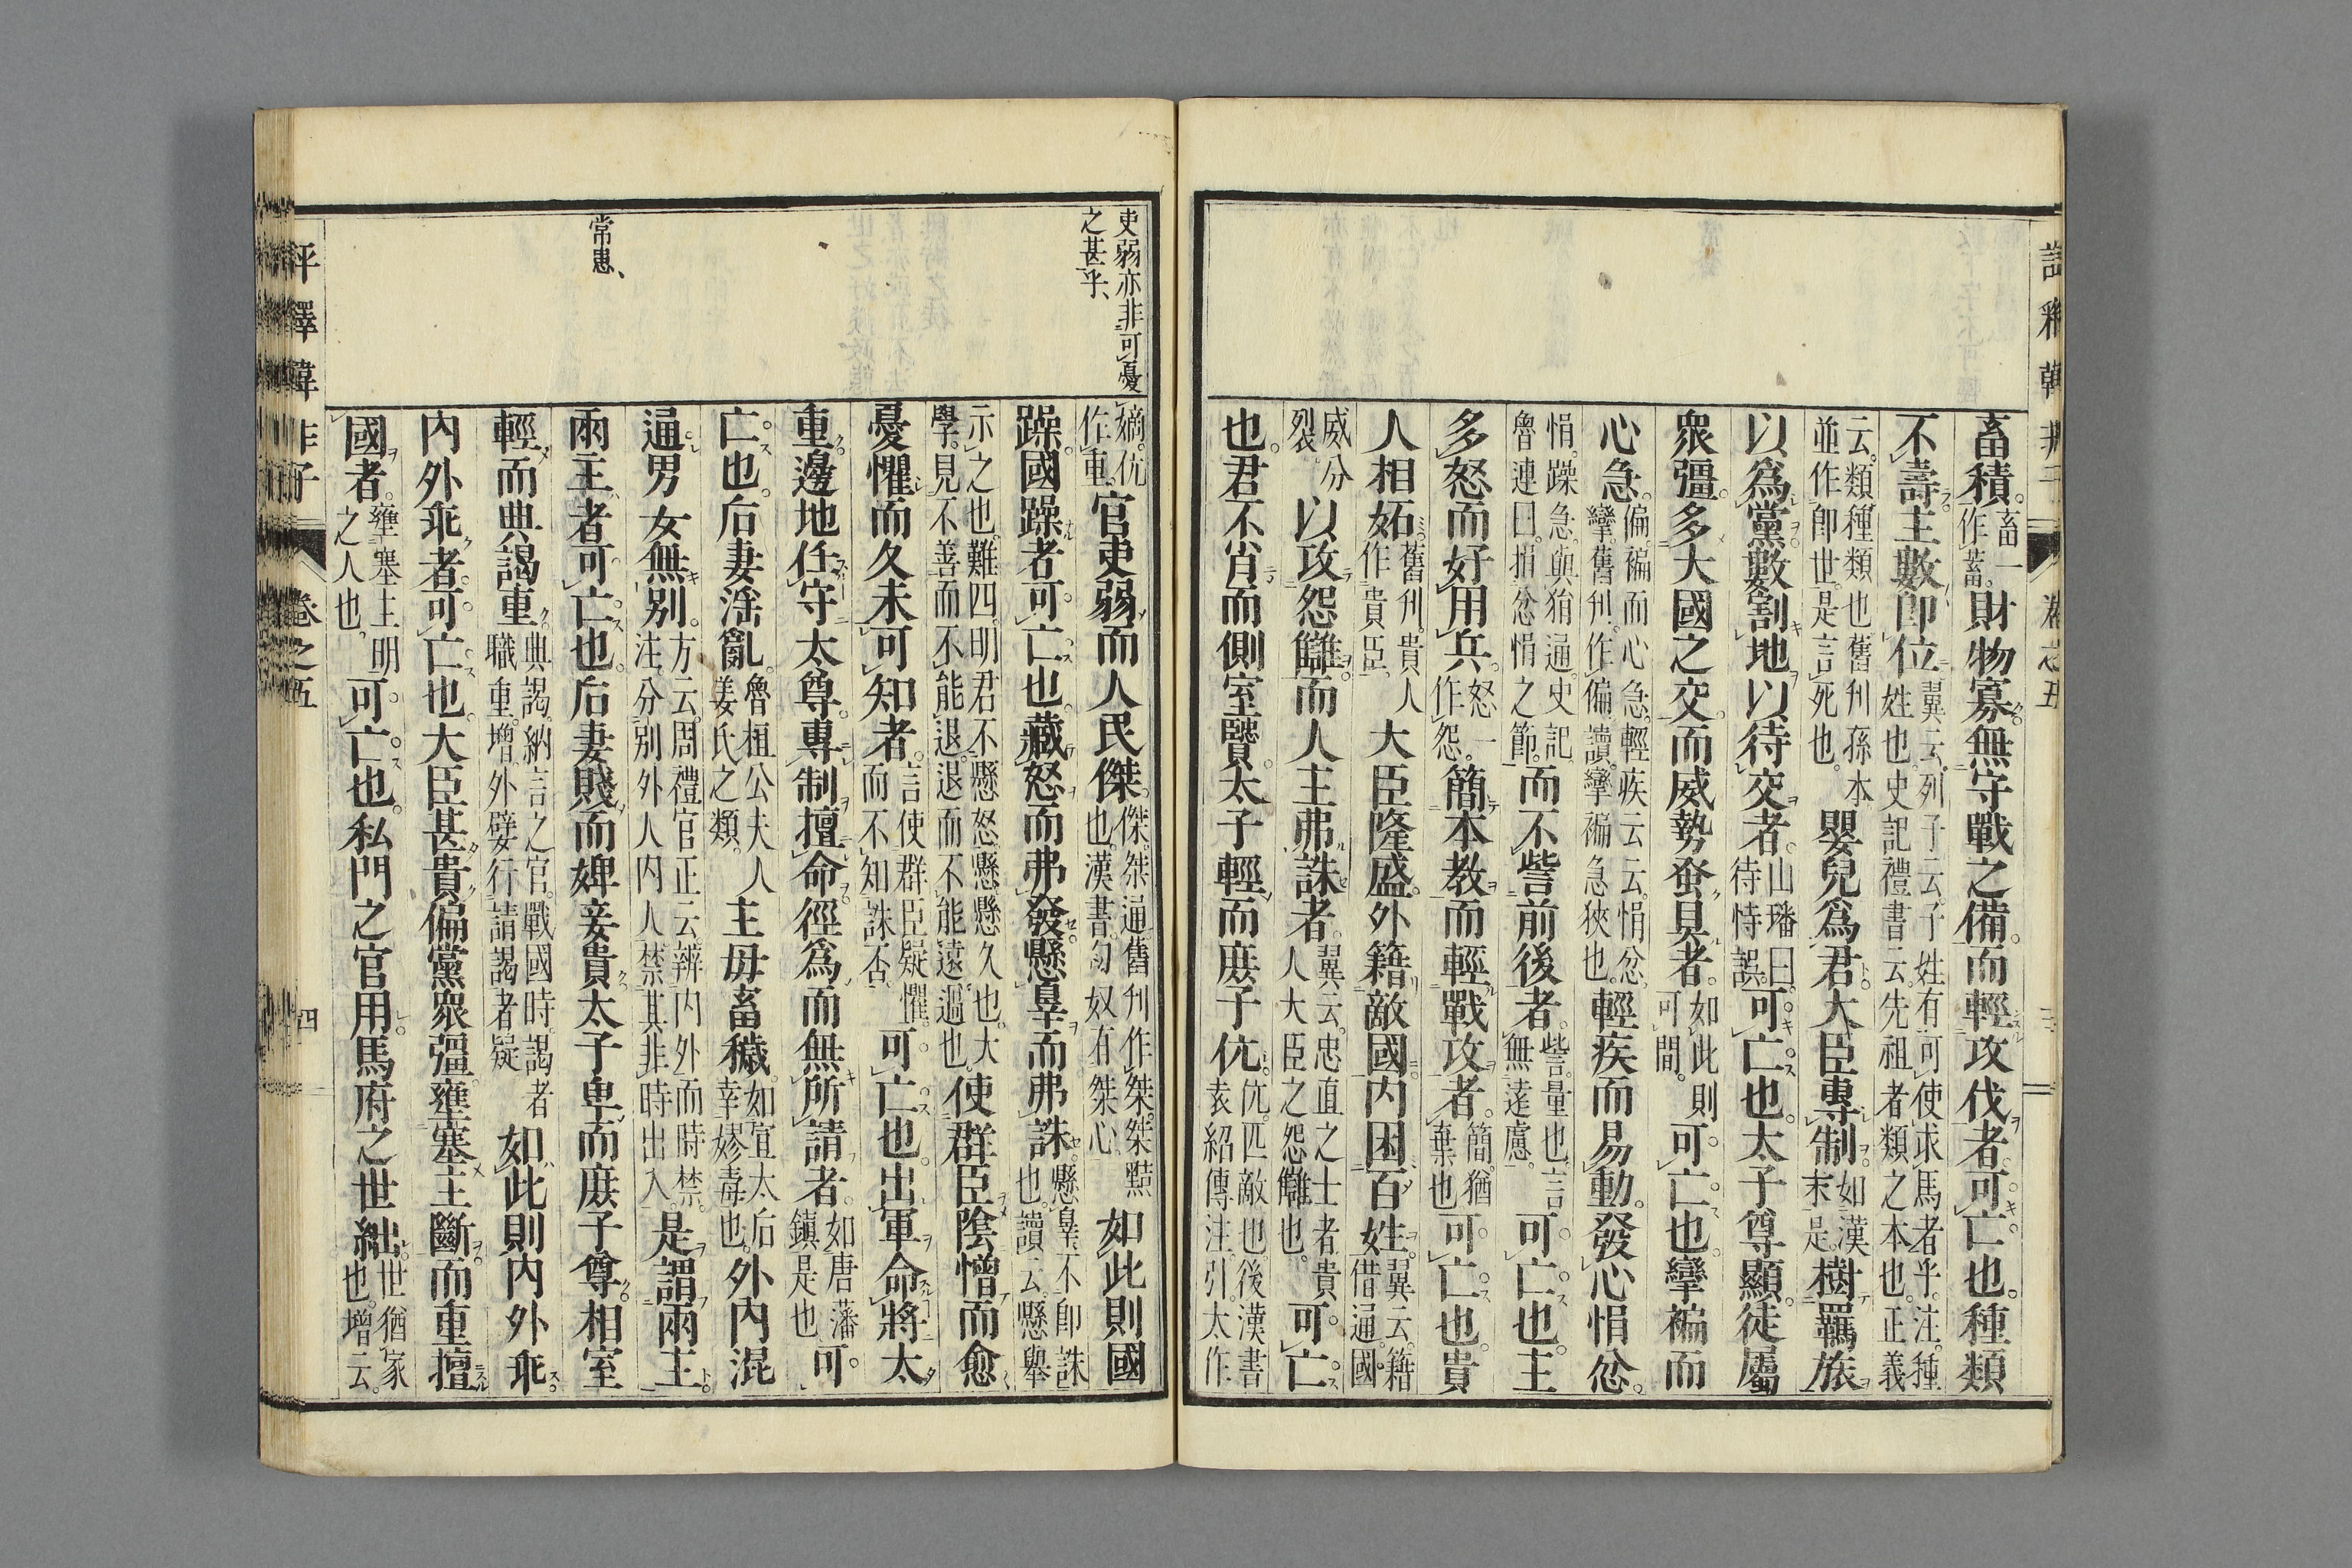 評釋韓非子
卷之五
三
畜積。畜一作蓄。財物寡。無守戰之備。而輕攻伐者。可亡也。種類
不壽。主數卽位。翼云。列子云。子姓有可使求馬者乎。注。種姓也。史記禮書云。先祖者類之本也。正義
云。類種類也。舊刊孫本並作卽世。是言死也。嬰兒爲君。大臣專制。如漢末是。樹羈旅
以爲黨。數割地以待交者。山璠曰。待恃誤。可亡也。太子尊顯。徒屬
衆彊。多大國之交。而威勢蚤具者。如此則可閒。可亡也。攣褊而
心急。偏褊而心急。輕疾云云。悁忿。攣。舊刊作偏。讀攣褊急狹也。輕疾而易動。發心悁忿。
悁。躁急。與狷通。史記魯連曰。捐忿悁之節。而不訾前後者。訾。量也。言無遠慮。可亡也。主
多怒而好用兵。怒一作怨。簡本教而輕戰攻者。簡。猶棄也。可亡也。貴
人相妬。舊刊。貴人作貴臣。大臣隆盛。外籍敵國。内困百姓。翼云。籍借通。國
威分裂。以攻怨讎。而人主弗誅者。翼云。忠直之士者。貴人大臣之怨讎也。可亡
也。君不肖而側室賢。太子輕而庶子伉。伉。匹敵也。後漢書袁紹傳注。引。太作
吏弱亦非可憂
之甚乎、
嫡。伉作重。官吏弱而人民傑。傑。桀通。舊刊作桀。桀黠也。漢書。匈奴有桀心。如此則國
躁。國躁者。可亡也。藏怒而弗發。懸辠而弗誅。懸辠不卽誅也。讀云。懸擧
示之也。難四。明君不懸怒。懸。懸久也。大學。見不善而不能退。退而不能遠過也。使群臣陰憎而愈
憂懼。而久未可知者。言使群臣疑懼。而不知誅否。可亡也。出軍命將太
重。邊地任守太尊。專制擅命。徑爲而無所請者。如唐藩鎮是也。可
亡也。后妻淫亂。魯桓公夫人姜氏之類。主母畜穢。如宣太后幸嫪毐也。外内混
通。男女無別。方云。周禮官正云。辨内外而時禁。注。分別外人内人。禁其非時出入。是謂兩主。
常惠、
兩主者。可亡也。后妻賤而婢妾貴。太子卑而庶子尊。相室
輕而典謁重。典謁。納言之官。戰國時。謁者職重。增。外嬖行請謁者。疑。如此則内外乖。
内外乖者。可亡也。大臣甚貴。偏黨衆彊。壅塞主斷而重擅
國者。壅塞主明之人也。可亡也。私門之官用。馬府之世絀。世猶家也。增云。
評釋韓非子
卷之五
四